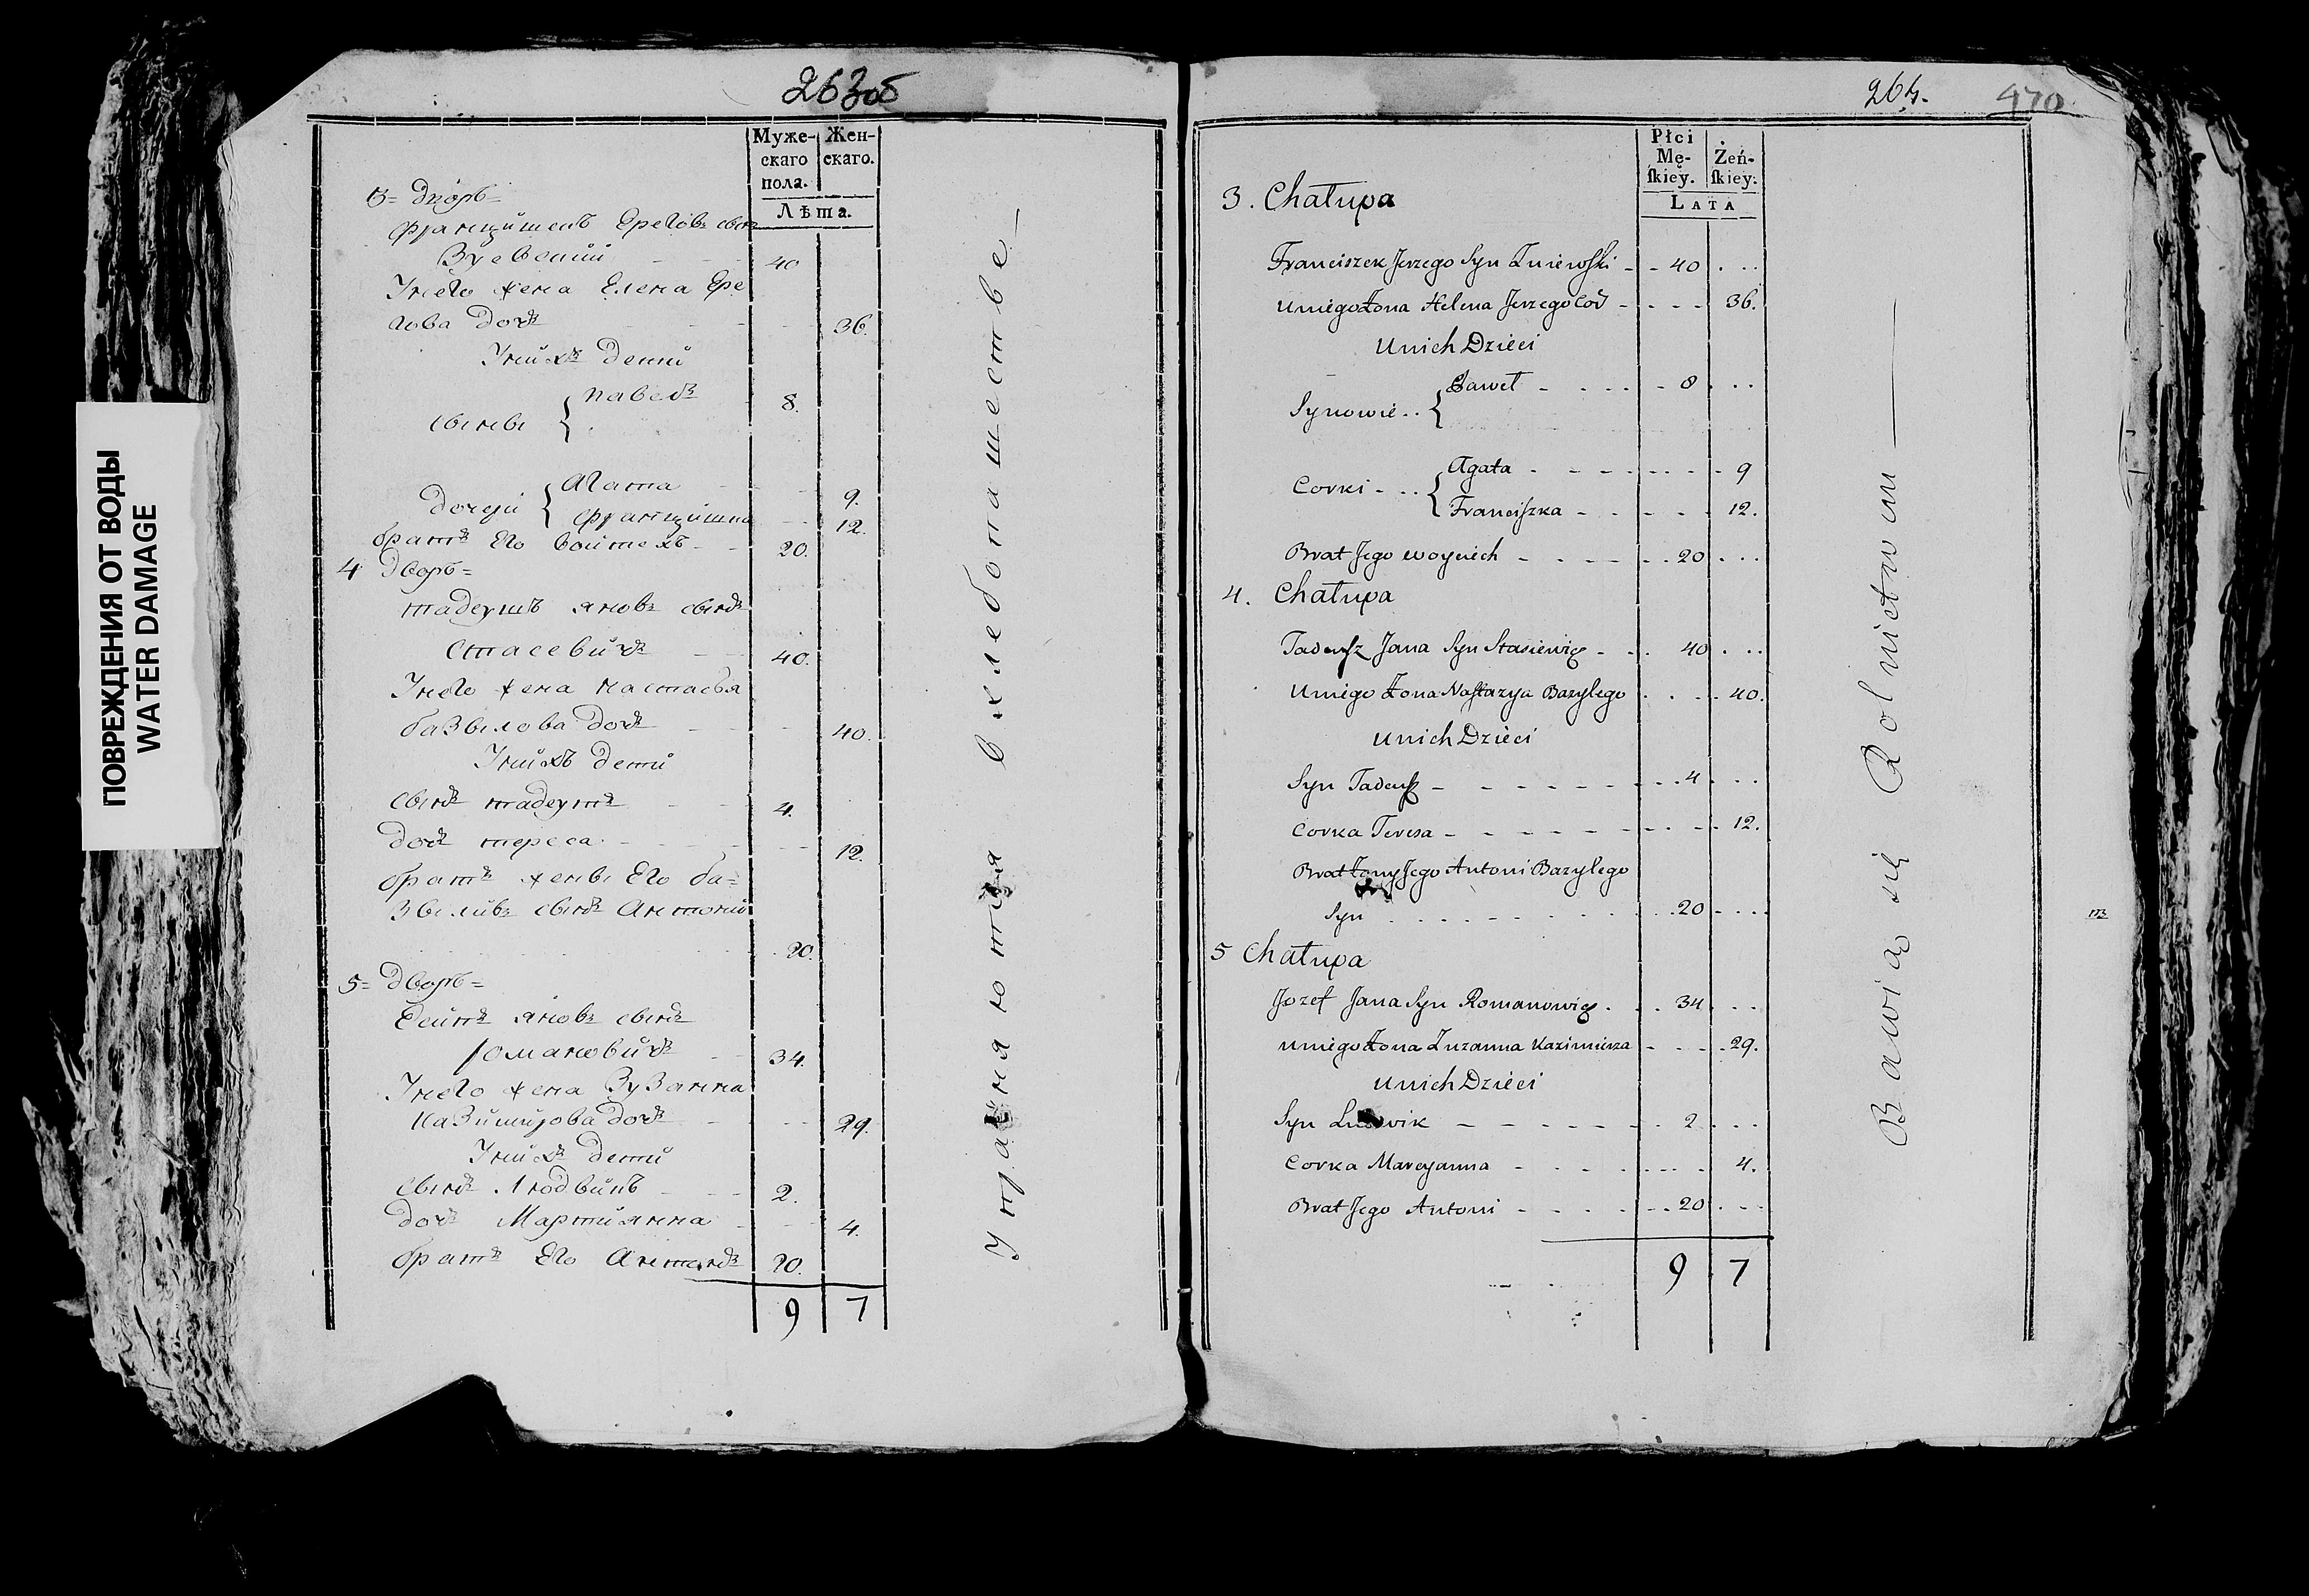 ПОВРЕЖДЕНИЯ ОТ ВОДЫ
WATER DAMAGE
263об
Муже-
скаго
пола.
Жен-
скаго.
Лѣта.
3= Дворъ=
Францишекъ Ереговъ сынъ
40
У него жена Елена Ере
гова дочь 36.
У нихъ дети
сыны { Павелъ 8.
дочери { Агата 9.
Францишка 12.
братъ Его Войтехъ 20.
4 Дворъ=
тадеушъ яновъ сынъ
Стасевичъ 40.
У него жена Настасья
базылова дочь 40.
У нихъ дети
сынъ тадеушъ 4.
дочь тереса 12.
братъ жены Его ба=
зыливъ сынъ Антоний
20.
5= Дворъ=
Есипъ яновъ сынъ
романовичъ 34.
У него жена Зузанна
казимирова дочь 29.
У нихъ дети
сынъ Людвикъ 2.
дочь Мартиянна 4.
братъ Его Антонъ 20.
9 7
Упражняются в хлебопашестве
264.
470
Płci
Mę-
skiey.
Żeń-
skiey.
LATA
3. Chałupa
Franciszek Jerzego Syn Zuiewski - - 40 . . .
U niego Żona Helena Jerzego Cor - - - - 36.
U nich Dzieci
Synowie . . { Paweł - . . . - 8 . . .
Corki - . . { Agata - - - - - - - 9
Franciszka - - - - - 12.
Brat Jego Woyciech - - - - . . 20 . . .
4. Chałupa
Tadeusz Jana Syn Stasiewicz - . . 40 . . .
U niego Żona Nastazya Bazylego . . - . 40.
U nich Dzieci
Syn Tadeusz - - - - - - - . . 4 . . .
Corka Teresa - - - - - - - - - 12.
Brat Żony Jego Antoni Bazylego
Syn . . . . . . . . . . 20 . . .
5 Chałupa
Jozef Jana Syn Romanowicz . . . 34 . . .
U niego Żona Zuzanna Kazimierza - - - . 29.
U nich Dzieci
Syn Ludwik - - - - - - 2 . . .
Corka Marcyanna - . . . . . . . 4.
Brat Jego Antoni - . . . . - . 20 . . .
9 7
Bawią się Rolnictwem